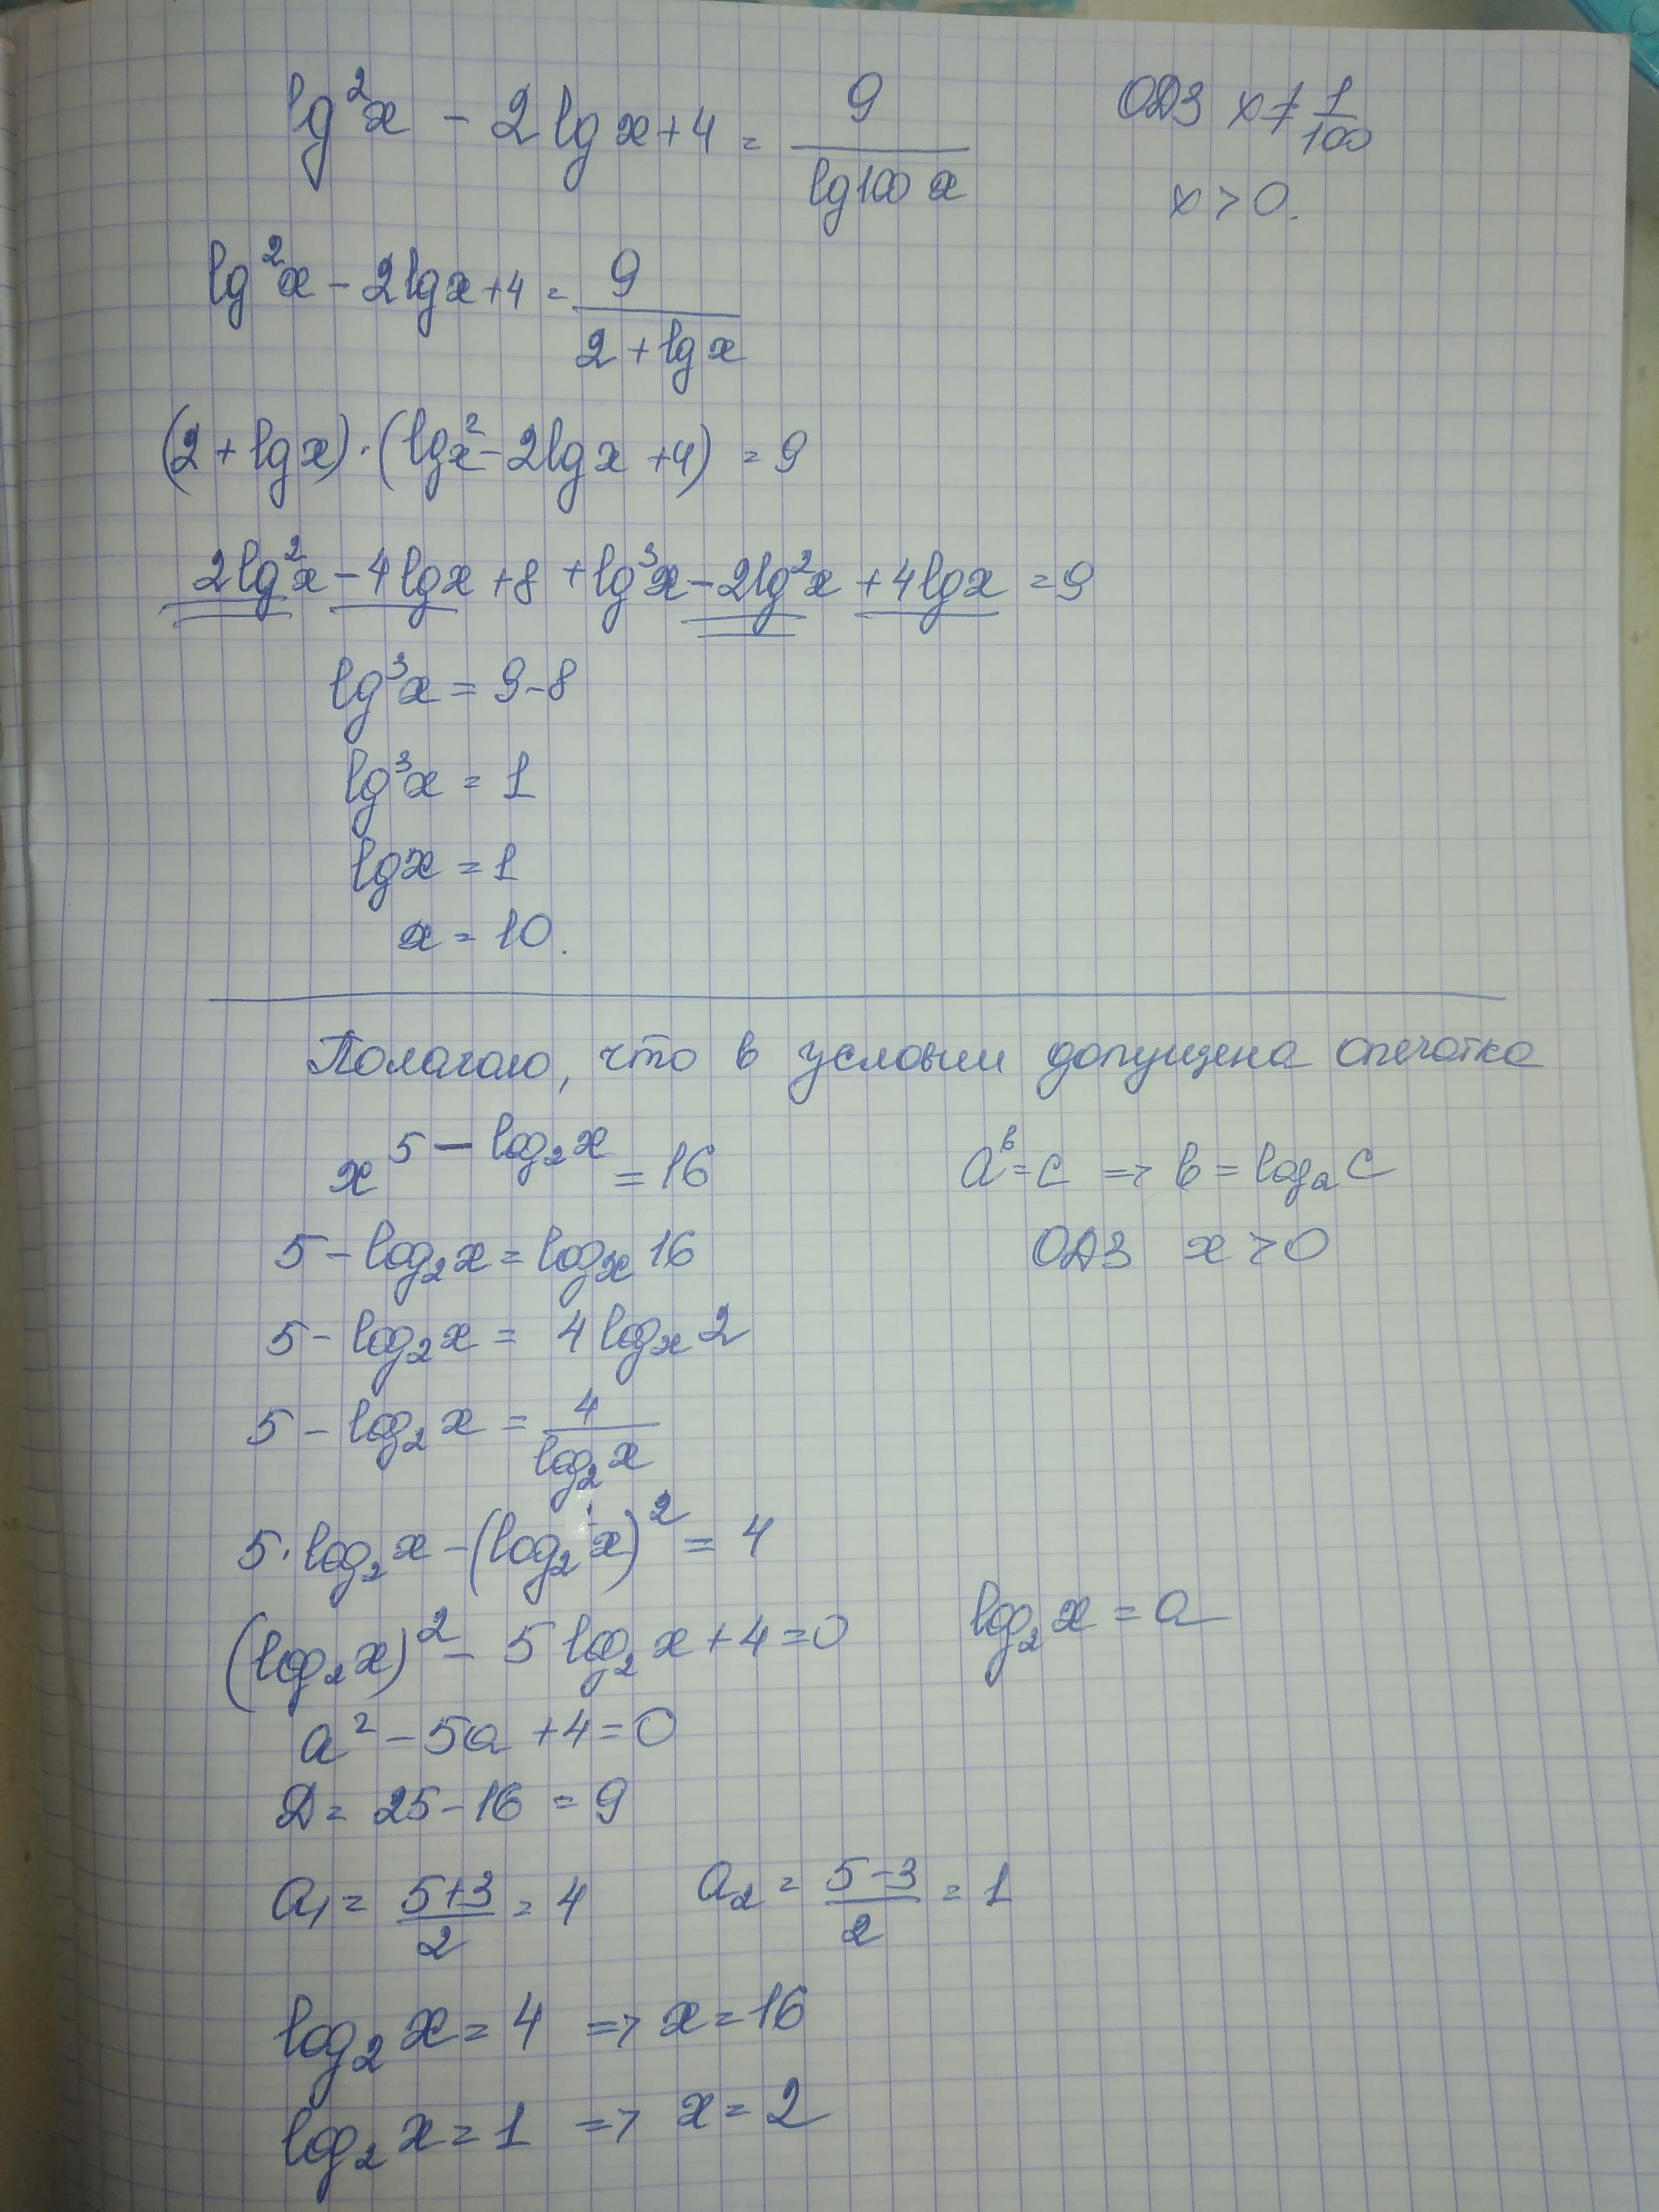 lg²x - 2lgx+4 = 9/(lg100x) ОДЗ x ≠ 1/100
x > 0.
lg²x - 2lgx+4 = 9/(2 + lgx)
(2 + lgx)·(lgx² - 2lgx + 4) = 9
2lg²x - 4lgx + 8 + lg³x - 2lg²x + 4lgx = 9
lg³x = 9-8
lg³x = 1
lgx = 1
x = 10.
Полагаю, что в условии допущена опечатка
x^(5 - log₂x) = 16 a^b = c => b = logₐc
5 - log₂x = logₓ16 ОДЗ x > 0
5 - log₂x = 4 logₓ2
5 - log₂x = 4/(log₂x)
5·log₂x - (log₂x)² = 4
(log₂x)² - 5log₂x + 4 = 0 log₂x = a
a² - 5a + 4 = 0
D = 25 - 16 = 9
a₁ = (5+3)/2 = 4 a₂ = (5-3)/2 = 1
log₂x = 4 => x = 16
log₂x = 1 => x = 2